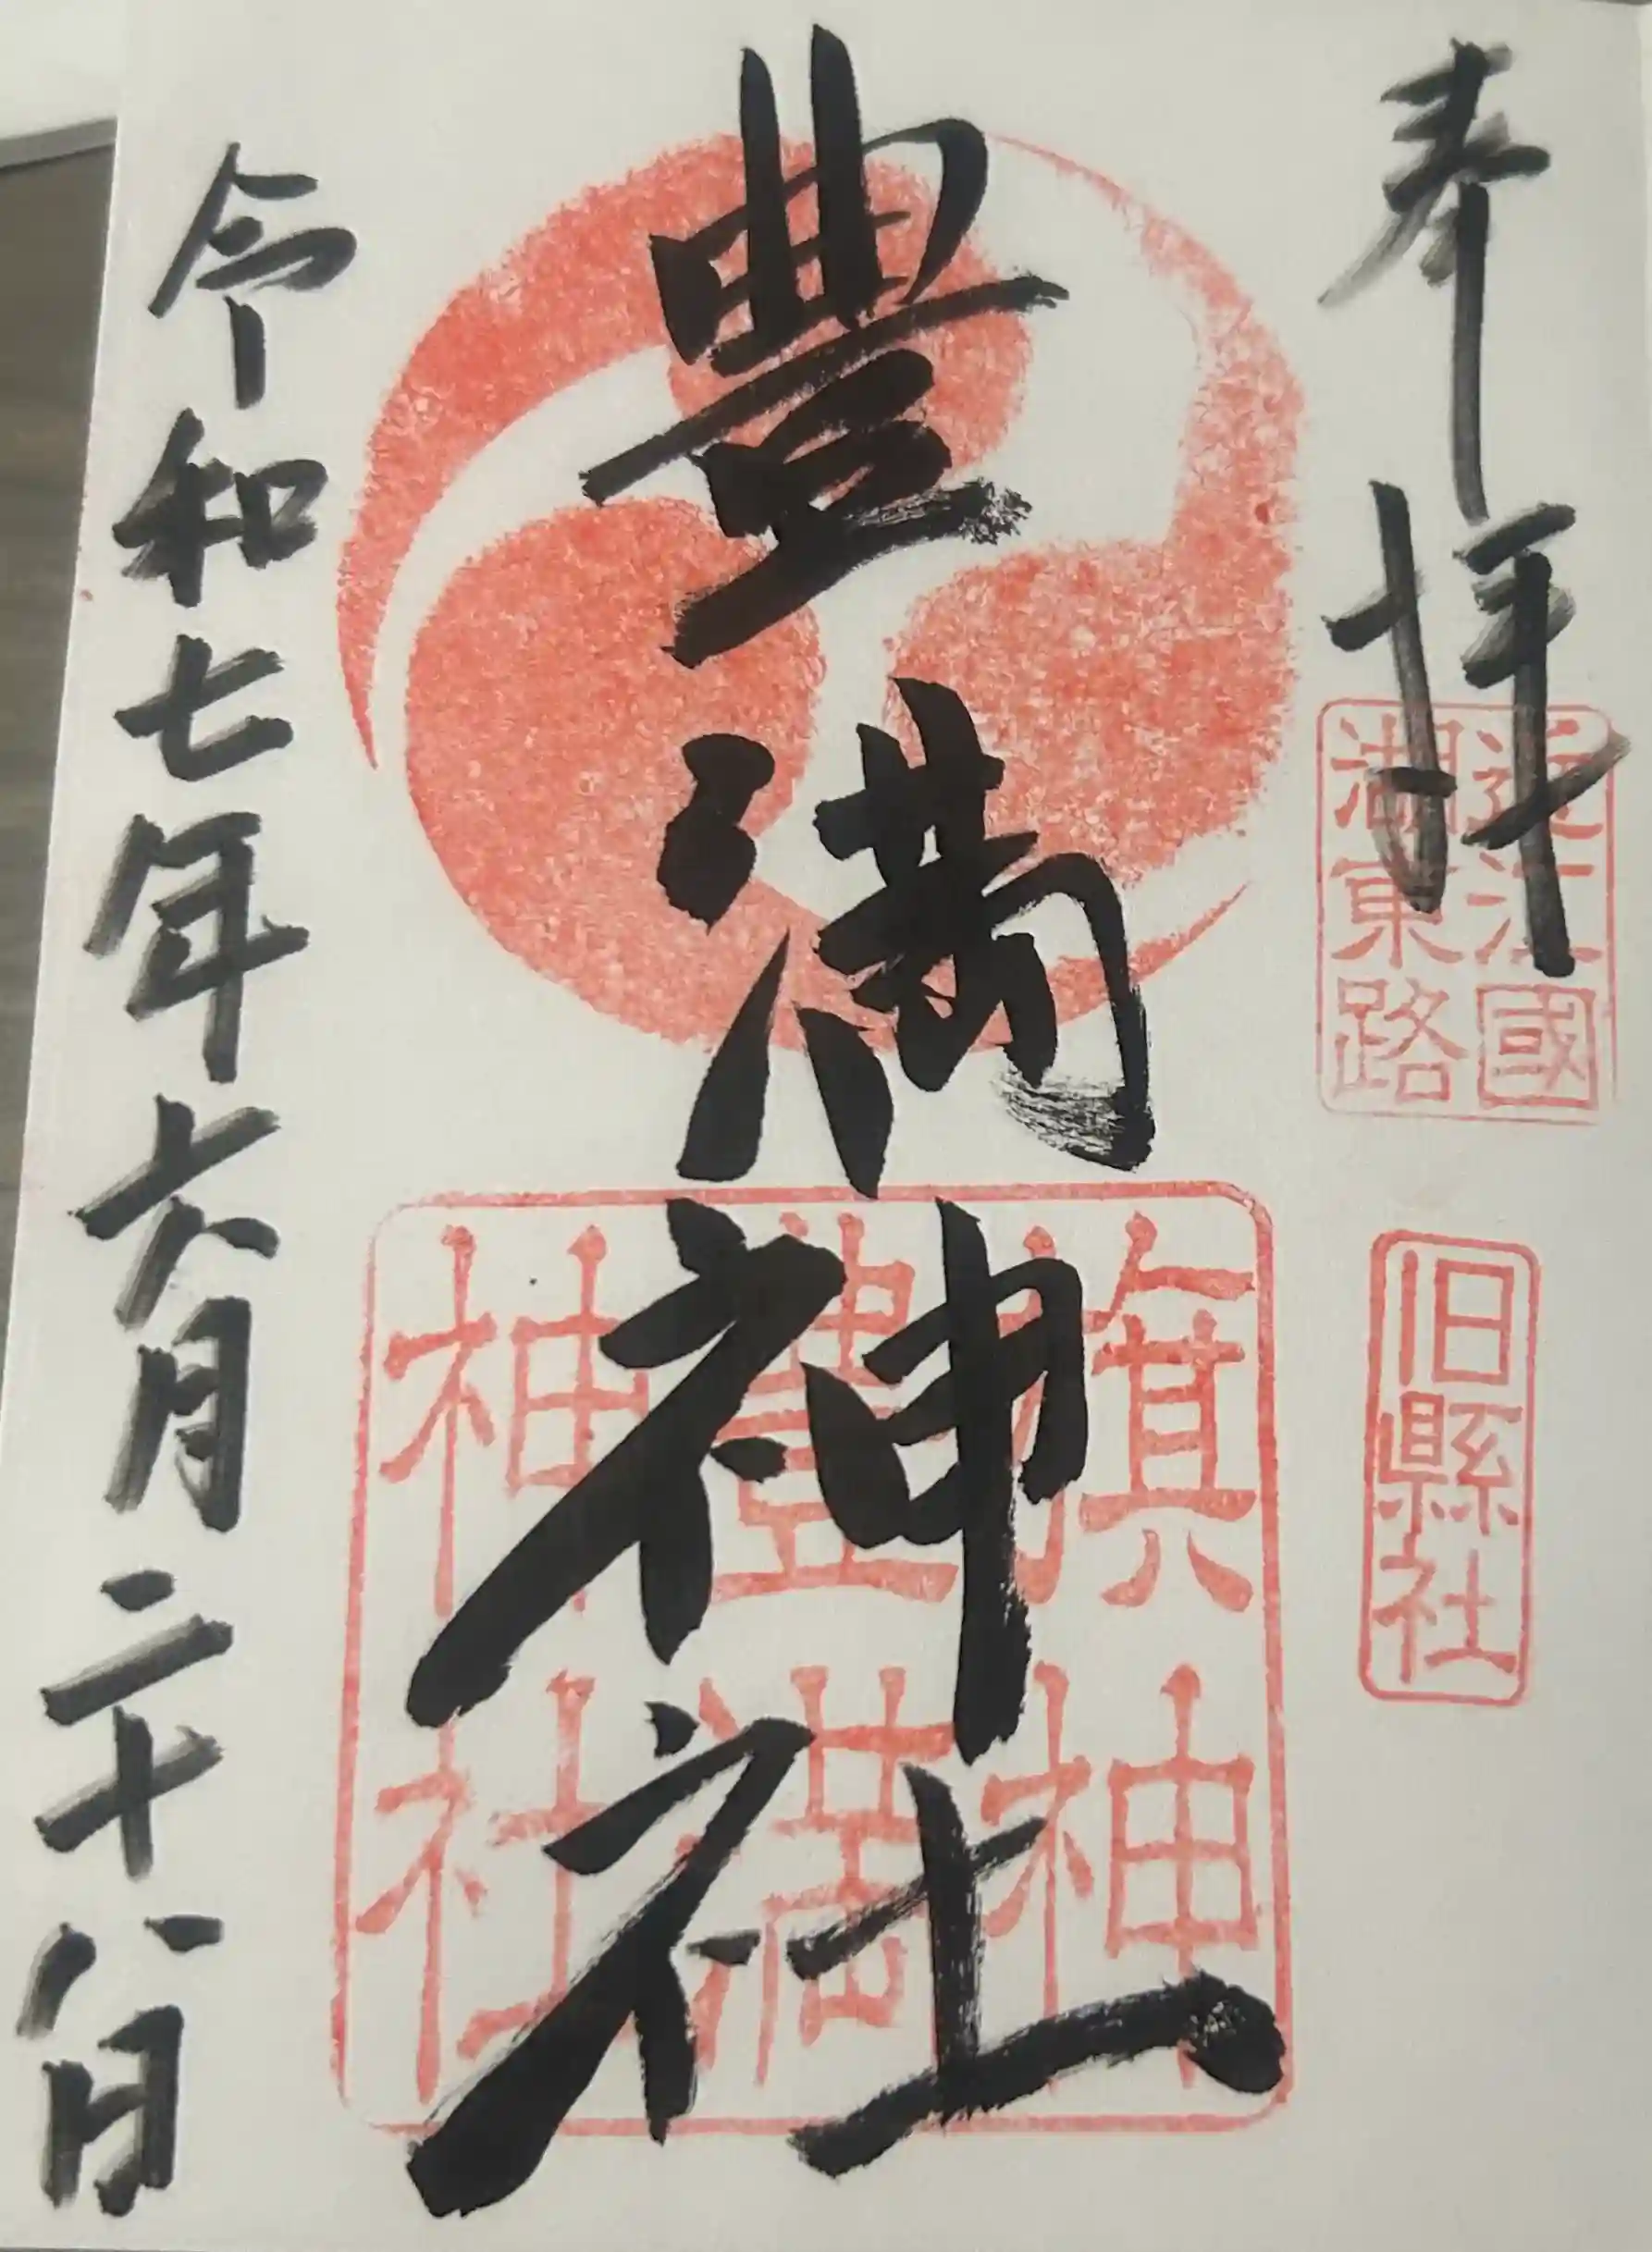 奉拝
近江國
湖東路
旧縣社
豊満神社
旗神
豊満
神社
令和七年六月二十八日